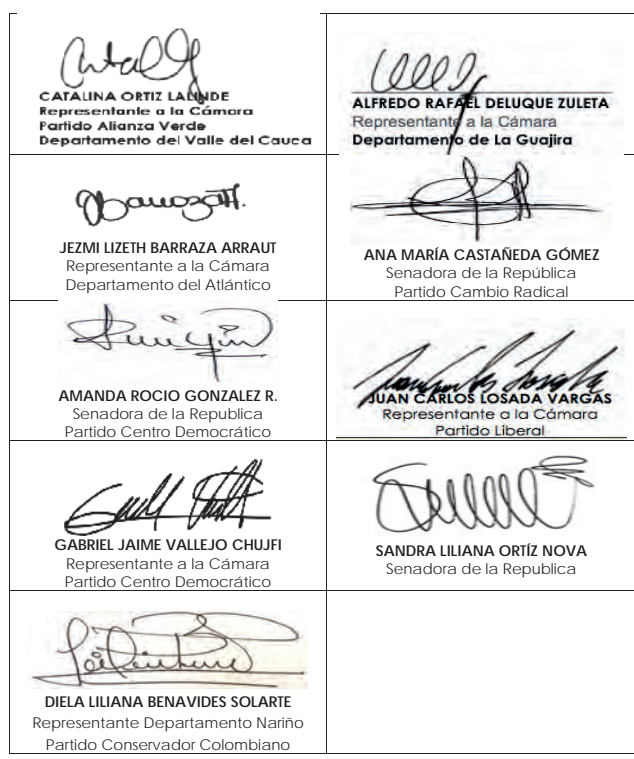 CATALINA ORTIZ LALINDE
Representante a la Cámara
Partido Alianza Verde
Departamento del Valle del Cauca
ALFREDO RAFAEL DELUQUE ZULETA
Representante a la Cámara
Departamento de La Guajira
JEZMI LIZETH BARRAZA ARRAUT
Representante a la Cámara
Departamento del Atlántico
ANA MARÍA CASTAÑEDA GÓMEZ
Senadora de la República
Partido Cambio Radical
AMANDA ROCIO GONZALEZ R.
Senadora de la Republica
Partido Centro Democrático
JUAN CARLOS LOSADA VARGAS
Representante a la Cámara
Partido Liberal
GABRIEL JAIME VALLEJO CHUJFI
Representante a la Cámara
Partido Centro Democrático
SANDRA LILIANA ORTÍZ NOVA
Senadora de la Republica
DIELA LILIANA BENAVIDES SOLARTE
Representante Departamento Nariño
Partido Conservador Colombiano